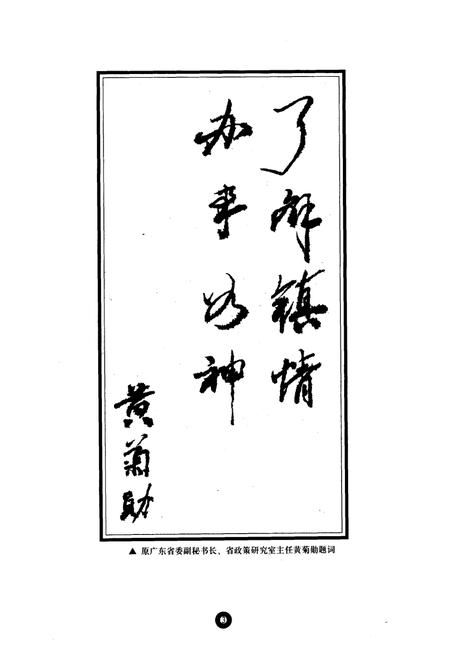 了解镇情
办事如神
黄菊勋
▲ 原广东省委副秘书长、省政策研究室主任黄菊勋题词
3